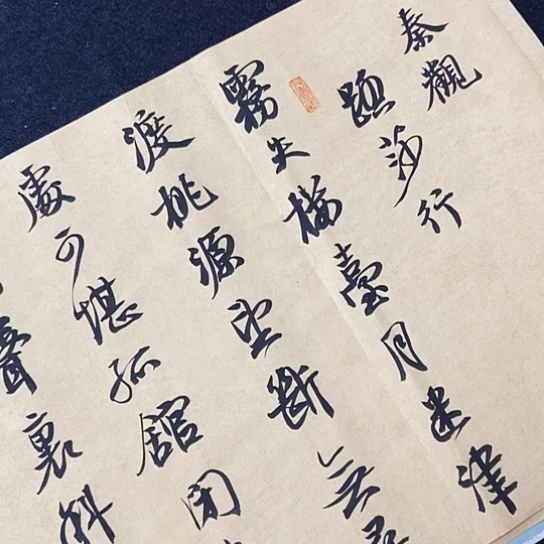 秦觀
踏莎行
霧失樓臺月迷津
渡桃源望斷无尋
處可堪孤館閉
聲裏斜